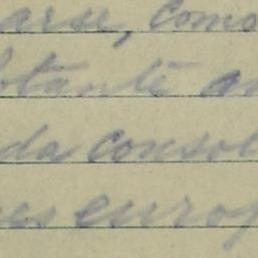 arse, como
bstante an
da consol
es europ